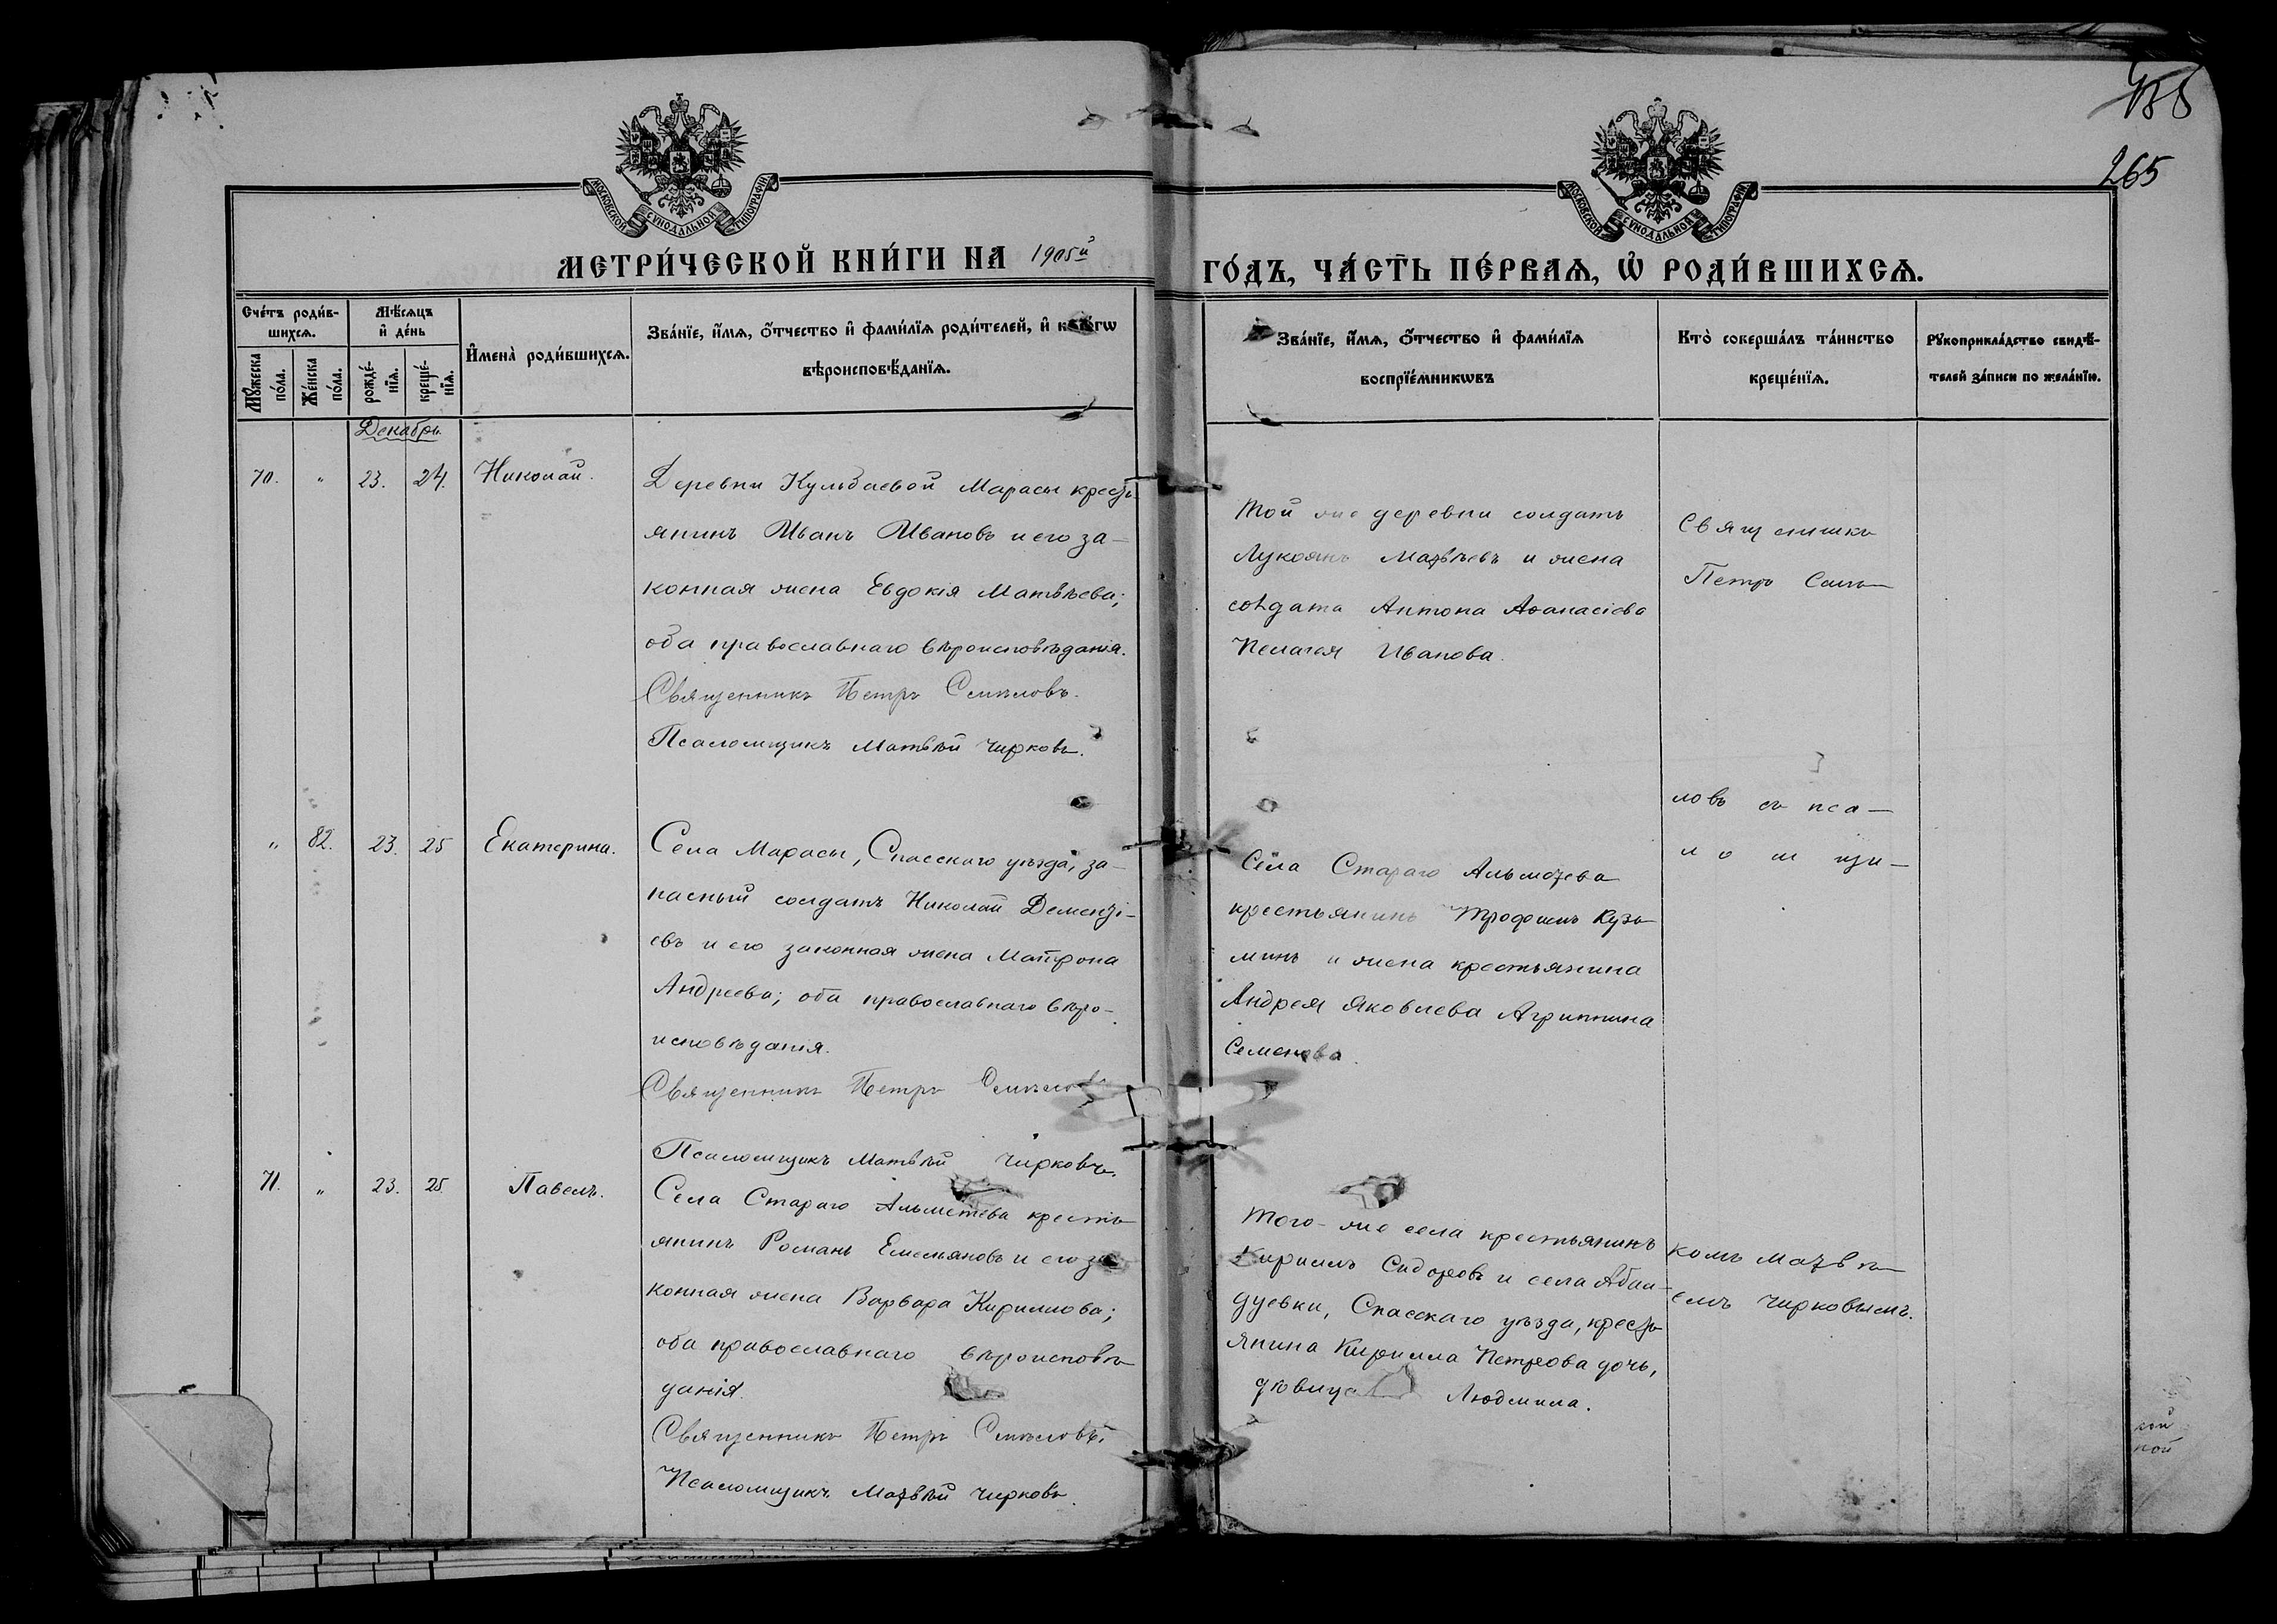 265
МОСКОВСКОЙ СУНОДАЛЬНОЙ ТИПОГРАФІИ
МОСКОВСКОЙ СУНОДАЛЬНОЙ ТИПОГРАФІИ
МЕТРИ́ЧЕСКОЙ КНИ́ГИ НА 1905й
ГО́ДЪ, ЧА́СТЬ ПЕ́РВАѦ, Ѡ РОДИ́ВШИХСѦ.
Сче́тъ роди́в-
шихсѧ.
Мꙋ́жеска
по́ла.
Же́нска
по́ла.
Мѣ́сѧцъ
и҆ де́нь
рожде́-
нїѧ.
креще́-
нїѧ.
И҆мена̀ роди́вшихсѧ.
Зва́нїе, и҆́мѧ, ѻ҆́тчество и҆ фами́лїѧ роди́телей, и҆
вѣроисповѣ́данїѧ.
Зва́нїе, и҆́мѧ, ѻ҆́тчество и҆ фами́лїѧ
воспрїе́мникѡвъ
Кто̀ соверша́лъ та́инство
креще́нїѧ.
Рꙋкоприкла́дство свидѣ́-
телей за́писи по жела́нїю.
Декабрь
70. " 23. 24. Николай.
Деревни Кульбаевой Марасы кресть-
янинъ Иванъ Ивановъ и его за-
конная жена Евдокія Матвѣева;
оба православнаго вѣроисповѣданія.
Священникъ Петръ Смѣловъ.
Псаломщикъ Матвѣй Чирковъ.
Той же деревни солдатъ
Лукоянъ Матвѣевъ и жена
солдата Антона Аѳанасіева
Пелагея Иванова.
Священникъ
Петръ Смѣ-
" 82. 23. 25 Екатерина.
Села Марасы, Спасскаго уѣзда, за-
пасный солдатъ Николай Дементі-
евъ и его законная жена Матрона
Андреева; оба православнаго вѣро-
исповѣданія.
Священникъ Петръ Смѣловъ
Псаломщикъ Матвѣй Чирковъ.
Села Стараго Альметева
крестьянинъ Трофимъ Кузь-
минъ и жена крестьянина
Андрея Яковлева Агриппина
Семенова.
ловъ съ пса-
ломщи-
71. " 23. 25. Павелъ.
Села Стараго Альметева кресть-
янинъ Романъ Емельяновъ и его за-
конная жена Варвара Кириллова;
оба православнаго вѣроисповѣ-
данія.
Священникъ Петръ Смѣловъ.
Псаломщикъ Матвѣй Чирковъ.
Того-же села крестьянинъ
Кириллъ Сидоровъ и села
Спасскаго уѣзда, кресть-
янина Кирилла Петрова дочь,
дѣвица Людмила.
комъ Матвѣ-
емъ Чирковымъ.